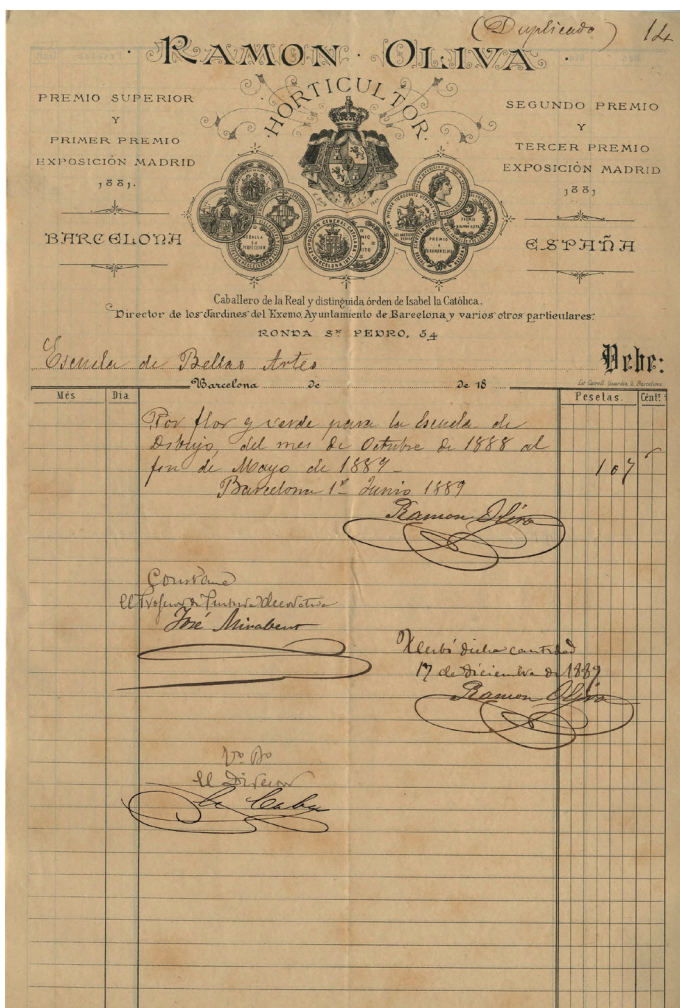 (Duplicado) 14
RAMON OLIVA
HORTICULTOR
PREMIO SUPERIOR
Y
PRIMER PREMIO
EXPOSICIÓN MADRID
1881.
BARCELONA
SEGUNDO PREMIO
Y
TERCER PREMIO
EXPOSICIÓN MADRID
1881
ESPAÑA
Caballero de la Real y distinguida órden de Isabel la Católica.
Director de los Jardines del Exemo. Ayuntamiento de Barcelona y varios otros particulares.
RONDA Sn. PEDRO, 54
Escuela de Bellas Artes Debe:
Barcelona de de 18
Més Dia Pesetas. Cént.s
Por flor y verde para la Escuela de
Dibujo, del mes de Octubre de 1888 al
fin de Mayo de 1889 - 107
Barcelona 1º Junio 1889
Ramon Oliva
Conforme
El Profesor de Pintura Decorativa
José Mirabent
Recibí dicha cantidad
17 de Diciembre de 1889
Ramon Oliva
Vº Bº
El Director
Caba